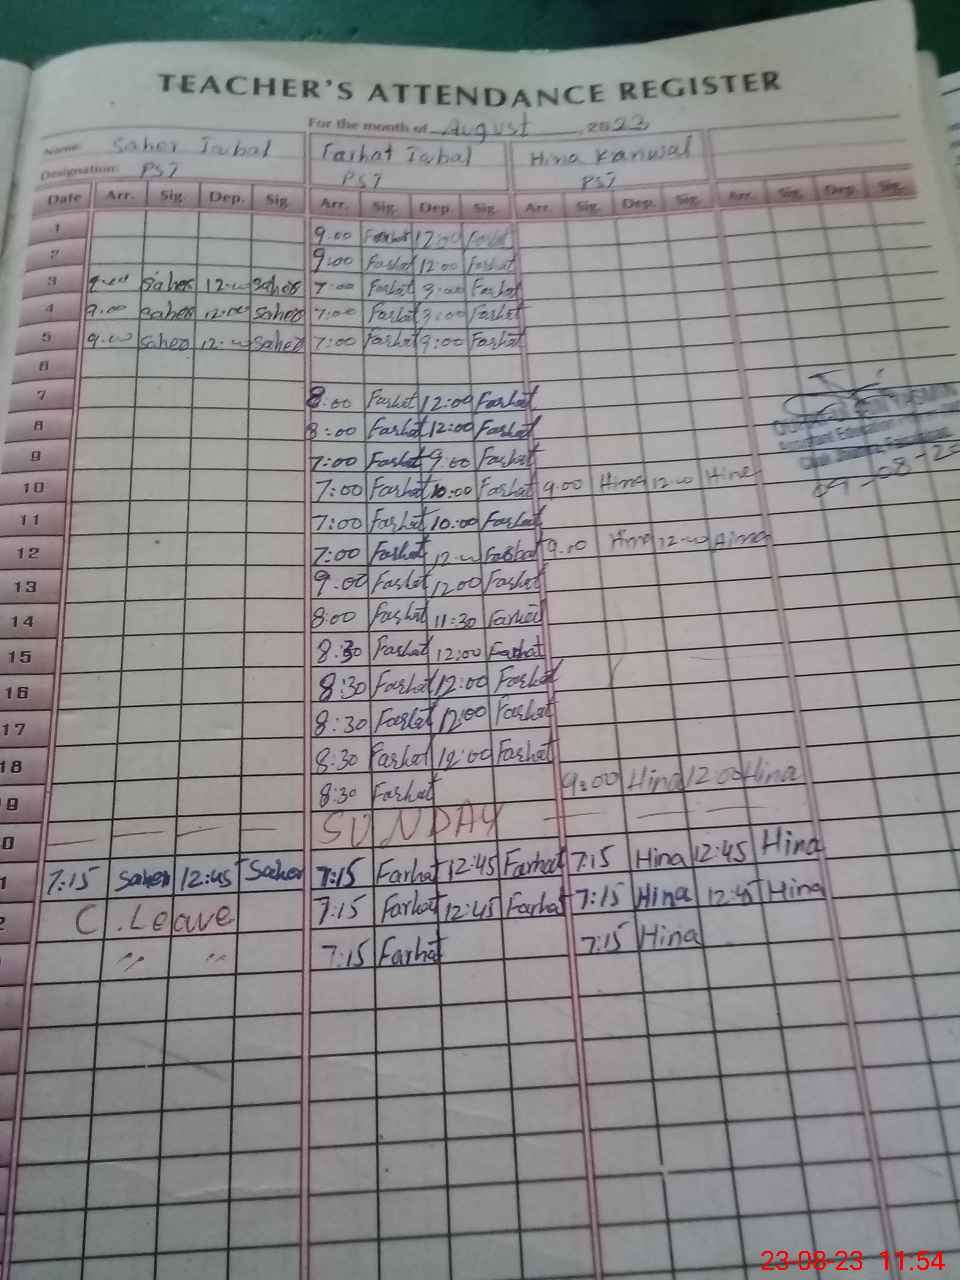 TEACHER'S ATTENDANCE REGISTER
For the month of August, 2023
Name: Saher Iqbal Farhat Iqbal Hina Kanwal
Designation: PST PST PST
Date Arr. Sig. Dep. Sig. Arr. Sig. Dep. Sig. Arr. Sig. Dep. Sig. Arr. Sig. Dep. Sig.
1 9.00 Farhat 12:00 Farhat
2 9:00 Farhat 12:00 Farhat
3 9.00 Saher 12.00 Saher 7:00 Farhat 9:00 Farhat
4 9.00 Saher 12.00 Saher 7:00 Farhat 9:00 Farhat
5 9.00 Saher 12.00 Saher 7:00 Farhat 9:00 Farhat
6
7 8:00 Farhat 12:00 Farhat
8 8:00 Farhat 12:00 Farhat
9 7:00 Farhat 9:00 Farhat
10 7:00 Farhat 10:00 Farhat 9.00 Hina 12.00 Hina
11 7:00 Farhat 10:00 Farhat
12 7:00 Farhat 12.00 Farhat 9.00 Hina 12.00 Hina
13 9.00 Farhat 12.00 Farhat
14 8:00 Farhat 11:30 Farhat
15 8:30 Farhat 12:00 Farhat
16 8:30 Farhat 12:00 Farhat
17 8:30 Farhat 12:00 Farhat
18 8:30 Farhat 12:00 Farhat
9 8:30 Farhat 9:00 Hina 12:00 Hina
0 — — — — SUNDAY — — — —
1 7:15 Saher 12:45 Saher 7:15 Farhat 12:45 Farhat 7:15 Hina 12:45 Hina
2 C. Leave 7:15 Farhat 12:45 Farhat 7:15 Hina 12:45 Hina
" " 7:15 Farhat 7:15 Hina
Assistant Education
23-08-23 11:54